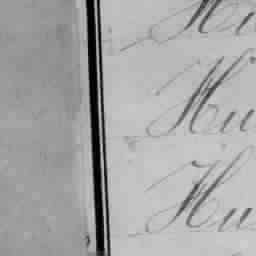 Hu
Hu
Hu